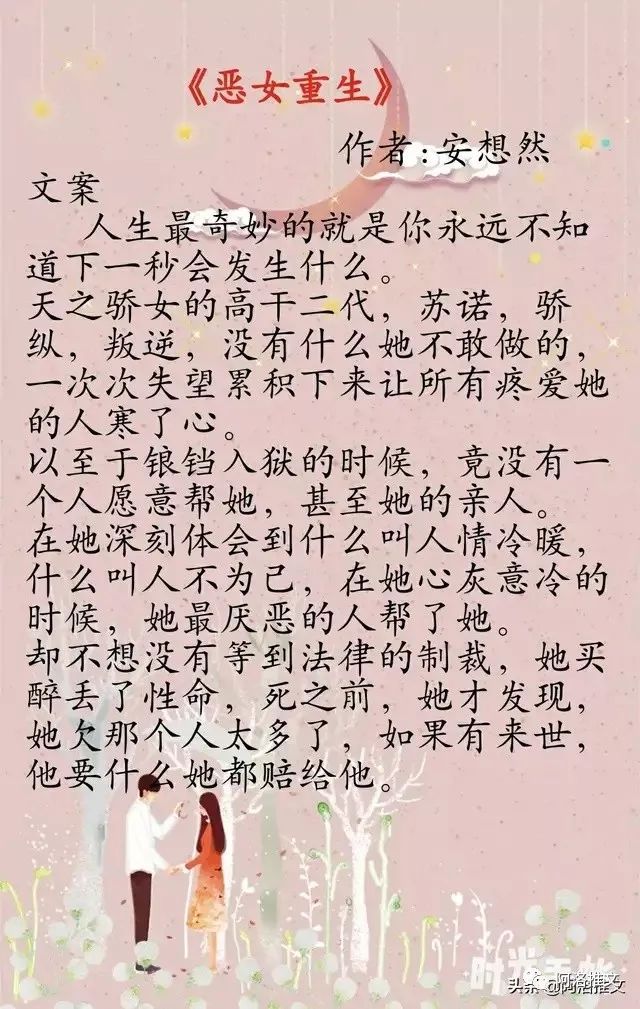 《恶女重生》
作者:安想然
文案
人生最奇妙的就是你永远不知
道下一秒会发生什么。
天之骄女的高干二代，苏诺，骄
纵，叛逆，没有什么她不敢做的，
一次次失望累积下来让所有疼爱她
的人寒了心。
以至于锒铛入狱的时候，竟没有一
个人愿意帮她，甚至她的亲人。
在她深刻体会到什么叫人情冷暖，
什么叫人不为己，在她心灰意冷的
时候，她最厌恶的人帮了她。
却不想没有等到法律的制裁，她买
醉丢了性命，死之前，她才发现，
她欠那个人太多了，如果有来世，
他要什么她都赔给他。
时光
阿洛推文
头条@阿洛推文